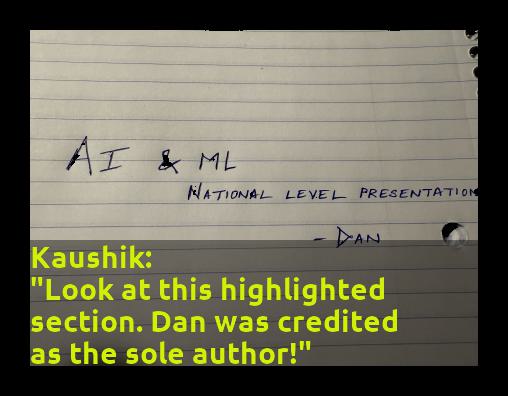 AI & ML
NATIONAL LEVEL PRESENTATION
- DAN
Kaushik:
"Look at this highlighted
section. Dan was credited
as the sole author!"